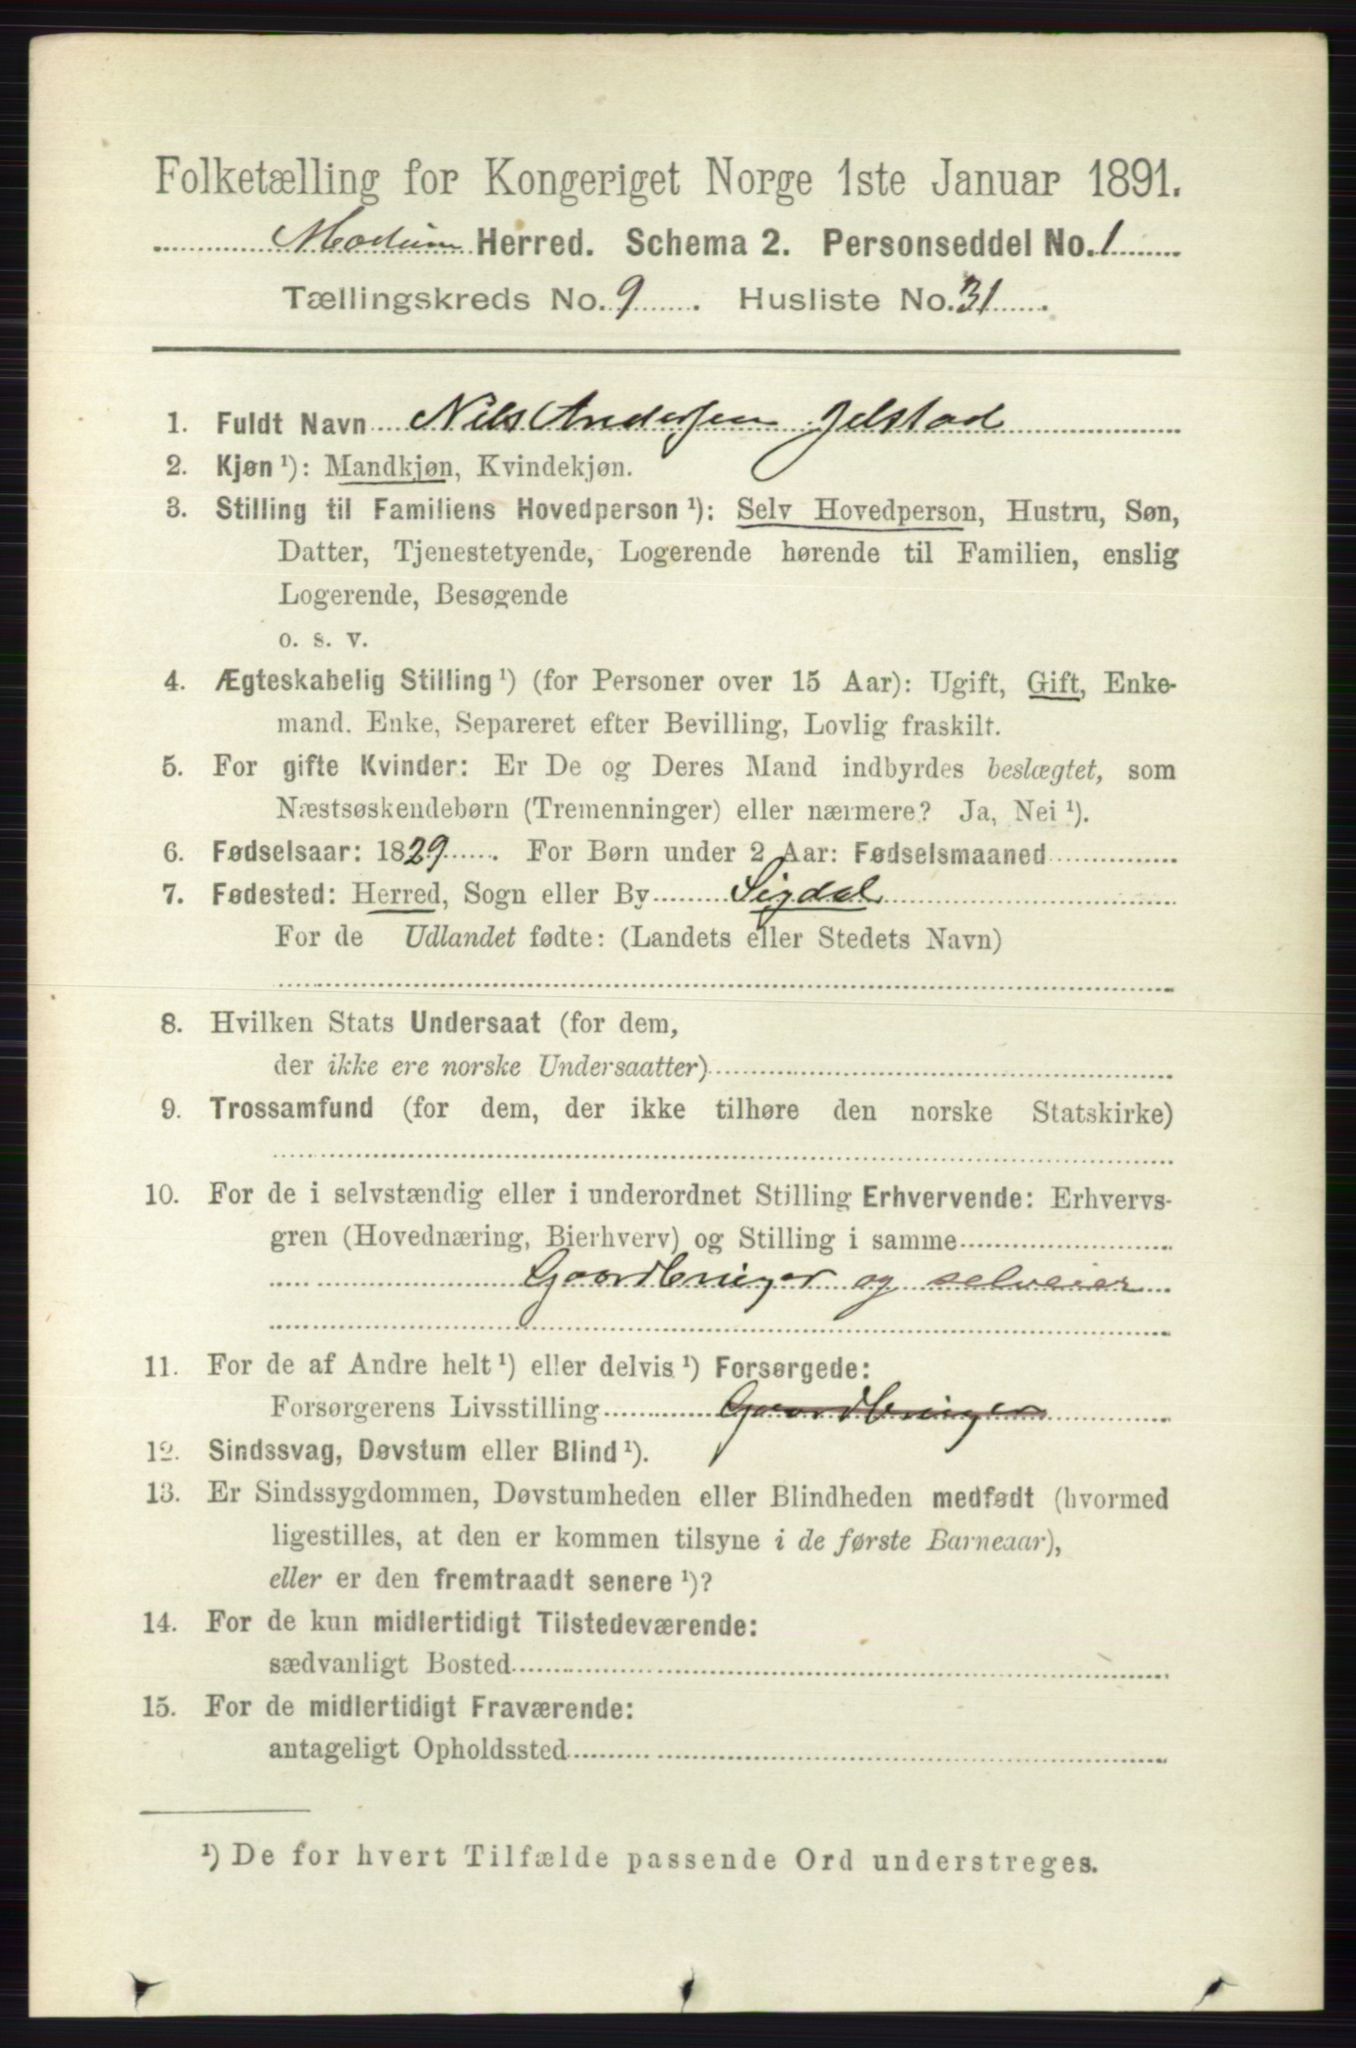 Folketælling for Kongeriget Norge 1ste Januar 1891.
Modum Herred. Schema 2. Personseddel No. 1
Tællingskreds No. 9. Husliste No. 31.
1. Fuldt Navn Nils Andersen Jelstad
2. Kjøn ¹): Mandkjøn, Kvindekjøn.
3. Stilling til Familiens Hovedperson ¹): Selv Hovedperson, Hustru, Søn,
Datter, Tjenestetyende, Logerende hørende til Familien, enslig
Logerende, Besøgende
o. s. v.
4. Ægteskabelig Stilling ¹) (for Personer over 15 Aar): Ugift, Gift, Enke-
mand. Enke, Separeret efter Bevilling, Lovlig fraskilt.
5. For gifte Kvinder: Er De og Deres Mand indbyrdes beslægtet, som
Næstsøskendebørn (Tremenninger) eller nærmere? Ja, Nei ¹).
6. Fødselsaar: 1829. For Børn under 2 Aar: Fødselsmaaned
7. Fødested: Herred, Sogn eller By Sigdal
For de Udlandet fødte: (Landets eller Stedets Navn)
8. Hvilken Stats Undersaat (for dem,
der ikke ere norske Undersaatter)
9. Trossamfund (for dem, der ikke tilhøre den norske Statskirke)
10. For de i selvstændig eller i underordnet Stilling Erhvervende: Erhvervs-
gren (Hovednæring, Bierhverv) og Stilling i samme
Gaardbruger og selveier
11. For de af Andre helt ¹) eller delvis ¹) Forsørgede:
Forsørgerens Livsstilling Gaardbruger
12. Sindssvag, Døvstum eller Blind ¹).
13. Er Sindssygdommen, Døvstumheden eller Blindheden medfødt (hvormed
ligestilles, at den er kommen tilsyne i de første Barneaar),
eller er den fremtraadt senere ¹)?
14. For de kun midlertidigt Tilstedeværende:
sædvanligt Bosted
15. For de midlertidigt Fraværende:
antageligt Opholdssted
¹) De for hvert Tilfælde passende Ord understreges.